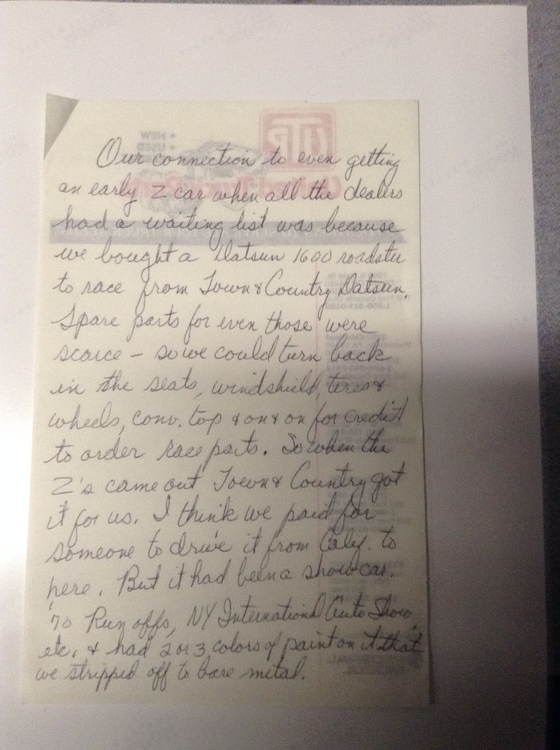 Our connection to even getting
an early Z car when all the dealers
had a waiting list was because
we bought a Datsun 1600 roadster
to race from Town & Country Datsun.
Spare parts for even those were
scarce – so we could turn back
in the seats, windshield, tires &
wheels, conv. top & on & on for credit
to order race parts. So when the
Z's came out Town & Country got
it for us. I think we paid for
someone to drive it from Calif. to
here. But it had been a show car.
'70 Run offs, NY International Auto Show,
etc. & had 2 or 3 colors of paint on it that
we stripped off to bare metal.
NEW
USED